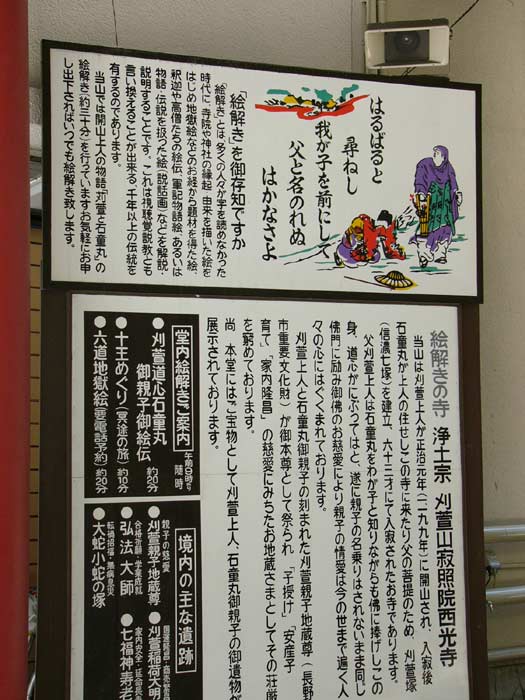 はるばると
尋ねし
我が子を前にして
父と名のれぬ
はかなさよ
「絵解き」を御存知ですか
「絵解き」とは、多くの人々が字を読めなかった
時代に、寺院や神社の縁起・由来を描いた絵を
はじめ地獄絵などのお経から題材を得た絵、
釈迦や高僧たちの絵伝、軍記物語絵、あるいは
物語・伝説を扱った絵(説話画)などを解説・
説明することです。これは視聴覚説教とも
言い換えることが出来る、千年以上の伝統を
有するのであります。
当山では開山上人の物語「苅萱と石童丸」の
絵解き(約三十分)を行っています。お気軽にお申
し出下さればいつでも絵解き致します。
絵解きの寺 浄土宗 苅萱山寂照院西光寺
当山は苅萱上人が正治元年(一一九九年)に開山され、入寂後
石童丸が上人の住せしこの寺に来たり父の菩提のため、苅萱塚
(信濃七塚)を建立、六十三才にて入寂されたお寺であります。
父苅萱上人は石童丸をわが子と知りながらも佛に捧げしこの
身、道心がにぶってはと、遂に親子の名乗りはされないまま同じ
佛門に励み御佛のお慈悲により親子の情愛は今の世まで遍く人
々の心にはぐくまれております。
苅萱上人と石童丸御親子の刻まれた苅萱親子地蔵尊(長野
市重要文化財)が御本尊として祭られ 「子授け」 「安産子
育て」「家内隆昌」の慈愛にみちたお地蔵さまとしてその荘厳
を窮めております。
尚、本堂にはご宝物として苅萱上人、石童丸御親子の御遺物が
展示されております。
堂内絵解きご案内 午前9時より 随時
●苅萱道心石童丸
御親子御絵伝 約20分
●十王めぐり(冥途の旅) 約10分
●六道地獄絵(要電話予約) 約20分
境内の主な遺跡
親子の慈愛
●苅萱親子地蔵尊
合格祈願・学業成就
●弘法大師
転禍招福・無病息災
●大蛇小蛇の塚
●苅萱稲荷大明
●七福神寿老